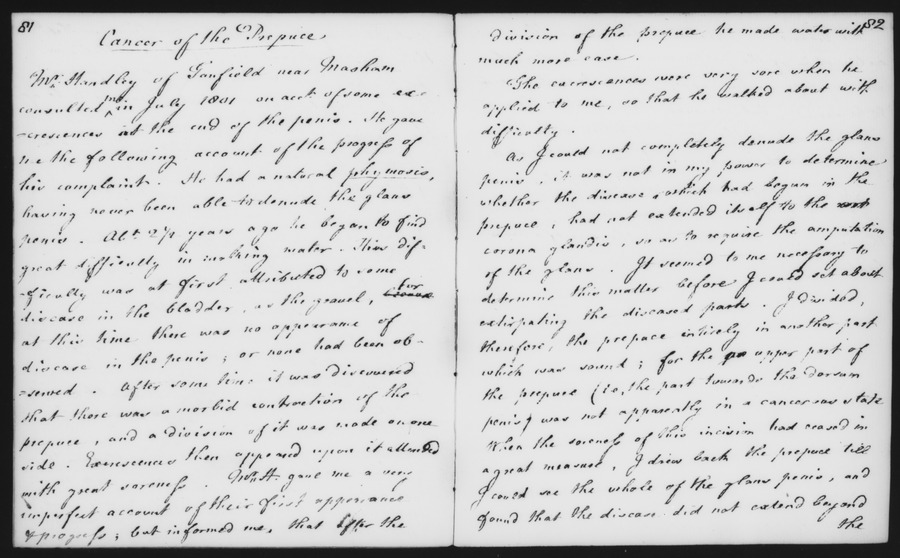 81
Cancer of the Prepuce
Mr. Handley of Ganfield near Masham
consulted me in July 1801 on acct. of some ex-
-crescences at the end of the penis. He gave
me the following account of the progress of
his complaint. He had a natural phymosis,
having never been able to denude the glans
penis. Abt. 2½ years ago he began to find
great difficulty in making water. This dif-
-ficulty was at first attributed to some
disease in the bladder, as the gravel, for
at this time there was no appearance of
disease in the penis; or none had been ob-
-served. After some time it was discovered
that there was a morbid contraction of the
prepuce, and a division of it was made on one
side. Excrescences then appeared upon it attended
with great soreness. Mr. H. gave me a very
imperfect account of their first appearance
& progress; but informed me, that after the
82
division of the prepuce he made water with
much more ease.
The excrescences were very sore when he
applied to me, so that he walked about with
difficulty.
As I could not completely denude the glans
penis, it was not in my power to determine
whether the disease, which had begun in the
prepuce, had not extended itself to the
corona glandis, so as to require the amputation
of the glans. It seemed to me necessary to
determine this matter before I could set about
extirpating the diseased part. I divided,
therefore, the prepuce entirely in another part
which was sound; for the upper part of
the prepuce (i.e. the part towards the dorsum
penis) was not apparently in a cancerous state
When the soreness of this incision had ceased in
a great measure, I drew back the prepuce till
I could see the whole of the glans penis, and
found that the disease did not extend beyond
the